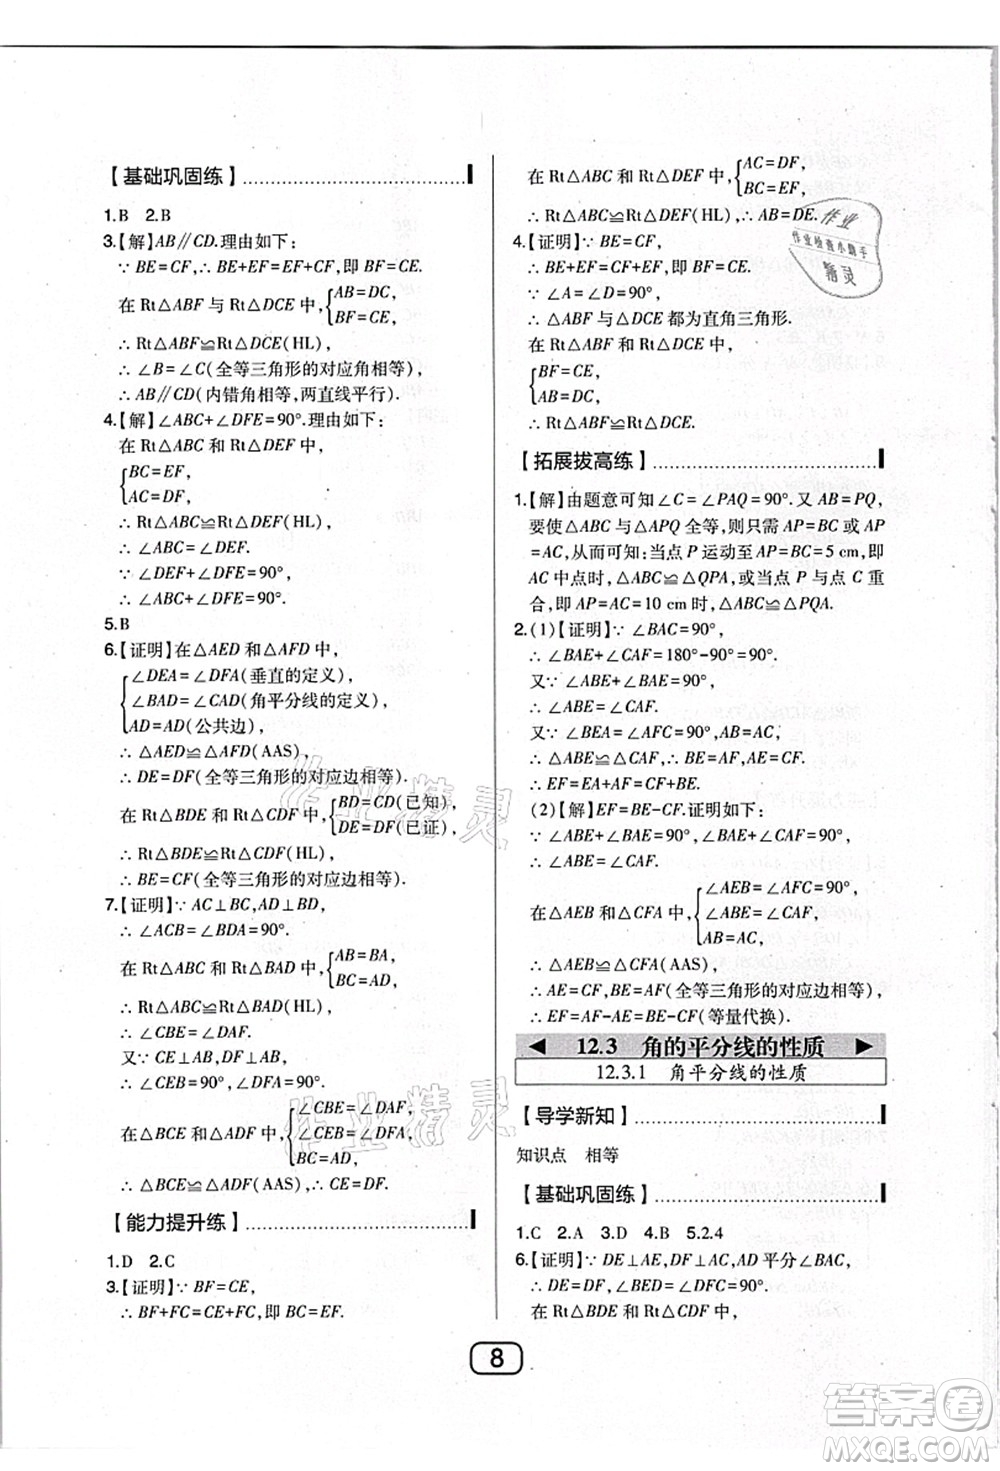 【基础巩固练】
1.B 2.B
3.【解】AB∥CD.理由如下：
∵ BE=CF,∴ BE+EF=EF+CF,即 BF=CE.
在 Rt△ABF 与 Rt△DCE 中,{AB=DC,
BF=CE,
∴ Rt△ABF≌Rt△DCE(HL),
∴ ∠B=∠C(全等三角形的对应角相等),
∴ AB∥CD(内错角相等,两直线平行).
4.【解】∠ABC+∠DFE=90°.理由如下：
在 Rt△ABC 和 Rt△DEF 中,
{BC=EF,
AC=DF,
∴ Rt△ABC≌Rt△DEF(HL),
∴ ∠ABC=∠DEF.
∵ ∠DEF+∠DFE=90°,
∴ ∠ABC+∠DFE=90°.
5.B
6.【证明】在△AED 和△AFD 中,
{∠DEA=∠DFA(垂直的定义),
∠BAD=∠CAD(角平分线的定义),
AD=AD(公共边),
∴ △AED≌△AFD(AAS),
∴ DE=DF(全等三角形的对应边相等).
在 Rt△BDE 和 Rt△CDF 中,{BD=CD(已知),
DE=DF(已证),
∴ Rt△BDE≌Rt△CDF(HL),
∴ BE=CF(全等三角形的对应边相等).
7.【证明】∵ AC⊥BC,AD⊥BD,
∴ ∠ACB=∠BDA=90°.
在 Rt△ABC 和 Rt△BAD 中,{AB=BA,
BC=AD,
∴ Rt△ABC≌Rt△BAD(HL),
∴ ∠CBE=∠DAF.
又∵ CE⊥AB,DF⊥AB,
∴ ∠CEB=∠DFA=90°.
在△BCE 和△ADF 中,{∠CBE=∠DAF,
∠CEB=∠DFA,
BC=AD,
∴ △BCE≌△ADF(AAS),∴ CE=DF.
【能力提升练】
1.D 2.C
3.【证明】∵ BF=CE,
∴ BF+FC=CE+FC,即 BC=EF.
在 Rt△ABC 和 Rt△DEF 中,{AC=DF,
BC=EF,
∴ Rt△ABC≌Rt△DEF(HL),∴ AB=DE.
4.【证明】∵ BE=CF,
∴ BE+EF=CF+EF,即 BF=CE.
∵ ∠A=∠D=90°,
∴ △ABF 与△DCE 都为直角三角形.
在 Rt△ABF 和 Rt△DCE 中,
{BF=CE,
AB=DC,
∴ Rt△ABF≌Rt△DCE.
【拓展拔高练】
1.【解】由题意可知∠C=∠PAQ=90°.又 AB=PQ,
要使△ABC 与△APQ 全等,则只需 AP=BC 或 AP
=AC,从而可知：当点 P 运动至 AP=BC=5 cm,即
AC 中点时,△ABC≌△QPA,或当点 P 与点 C 重
合,即 AP=AC=10 cm 时,△ABC≌△PQA.
2.(1)【证明】∵ ∠BAC=90°,
∴ ∠BAE+∠CAF=180°-90°=90°.
又∵ ∠BAE+∠ABE=90°,
∴ ∠ABE=∠CAF.
又∵ ∠BEA=∠CFA=90°,AB=AC,
∴ △ABE≌△CAF,∴ BE=AF,AE=CF.
∴ EF=EA+AF=CF+BE.
(2)【解】EF=BE-CF.证明如下：
∵ ∠BAE+∠ABE=90°,∠BAE+∠CAF=90°,
∴ ∠ABE=∠CAF.
在△AEB 和△CFA 中,{∠AEB=∠AFC=90°,
∠ABE=∠CAF,
AB=AC,
∴ △AEB≌△CFA(AAS),
∴ AE=CF,BE=AF(全等三角形的对应边相等),
∴ EF=AF-AE=BE-CF(等量代换).
12.3 角的平分线的性质
12.3.1 角平分线的性质
【导学新知】
知识点 相等
【基础巩固练】
1.C 2.A 3.D 4.B 5.2.4
6.【证明】∵ DE⊥AE,DF⊥AC,AD 平分∠BAC,
∴ DE=DF,∠BED=∠DFC=90°.
在 Rt△BDE 和 Rt△CDF 中,
8
作业
作业检查小助手
精灵
作业精灵
作业精灵
答案圈
MXQE.COM